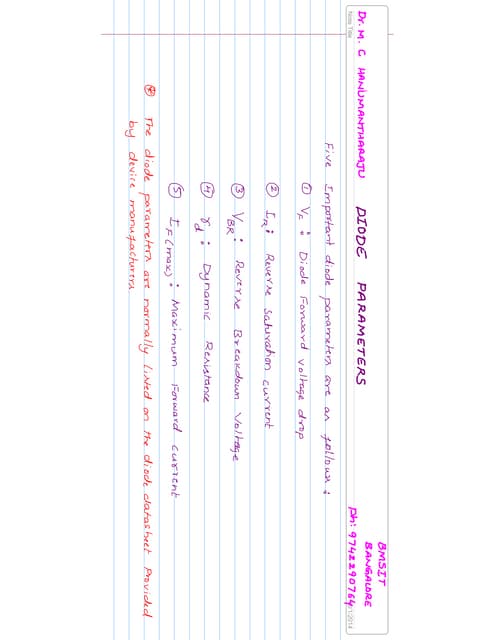 BMSIT
BANGALORE
Dr. M. C HANUMANTHARAJU DIODE PARAMETERS Ph: 9742290764
Note Title
Five Important diode parameters are as follows:
① VF : Diode Forward voltage drop
② IR : Reverse saturation current
③ VBR : Reverse Breakdown Voltage
④ rd : Dynamic Resistance
⑤ IF(max) : Maximum Forward current
* The diode parameters are normally listed on the diode datasheet provided
by device manufacturers